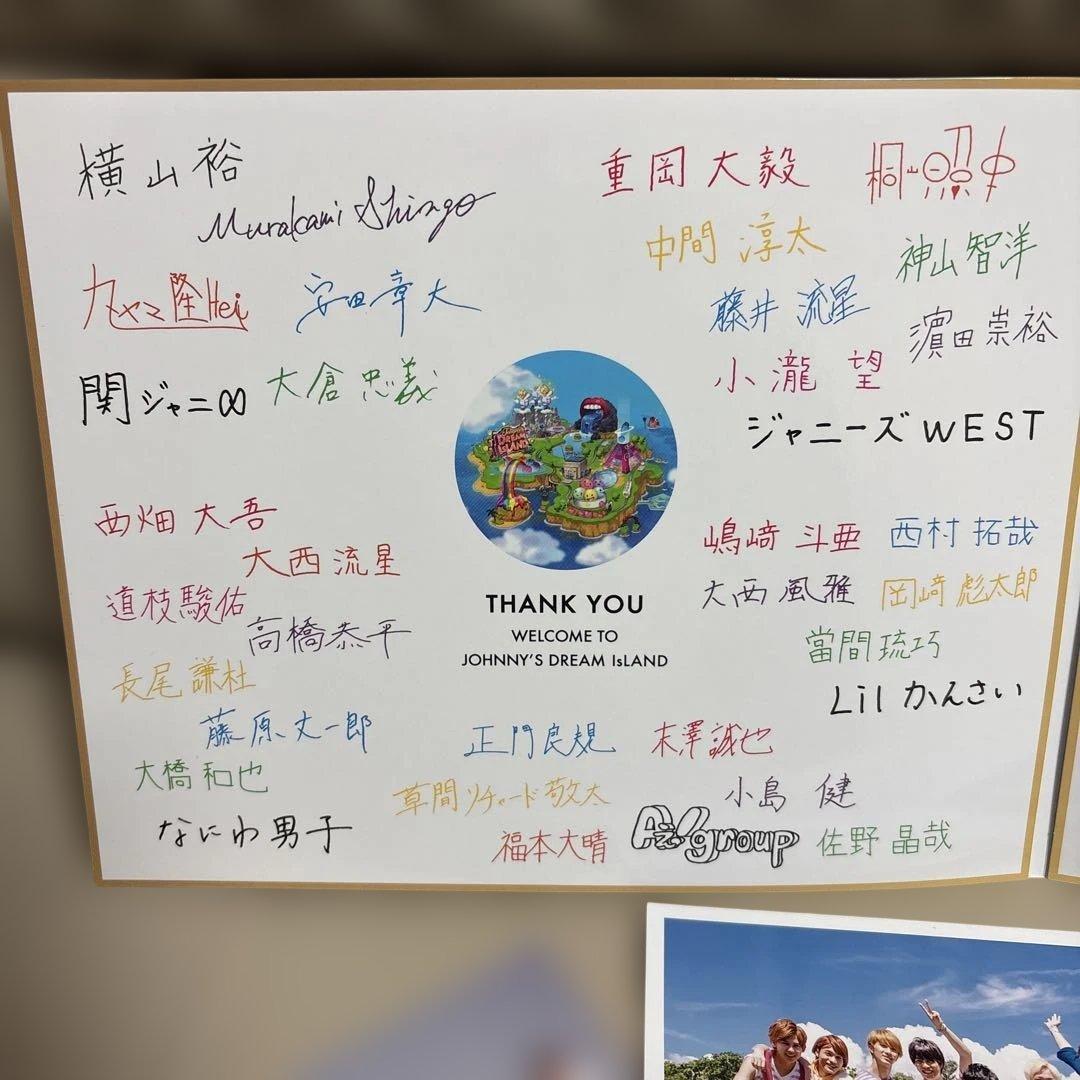 横山裕
Murakami Shingo
丸ヤマ隆Hei
安田章大
関ジャニ∞
大倉忠義
重岡大毅
中間 淳太
神山智洋
藤井 流星
濵田崇裕
小瀧 望
ジャニーズWEST
DREAM
ISLAND
THANK YOU
WELCOME TO
JOHNNY'S DREAM IsLAND
西畑 大吾
大西流星
道枝駿佑
高橋恭平
長尾謙杜
藤原丈一郎
大橋和也
なにわ男子
嶋﨑 斗亜
西村 拓哉
大西風雅
岡﨑 彪太郎
當間琉巧
Lil かんさい
正門良規
末澤誠也
草間リチャード敬太
小島 健
福本大晴
Aぇ!group
佐野 晶哉